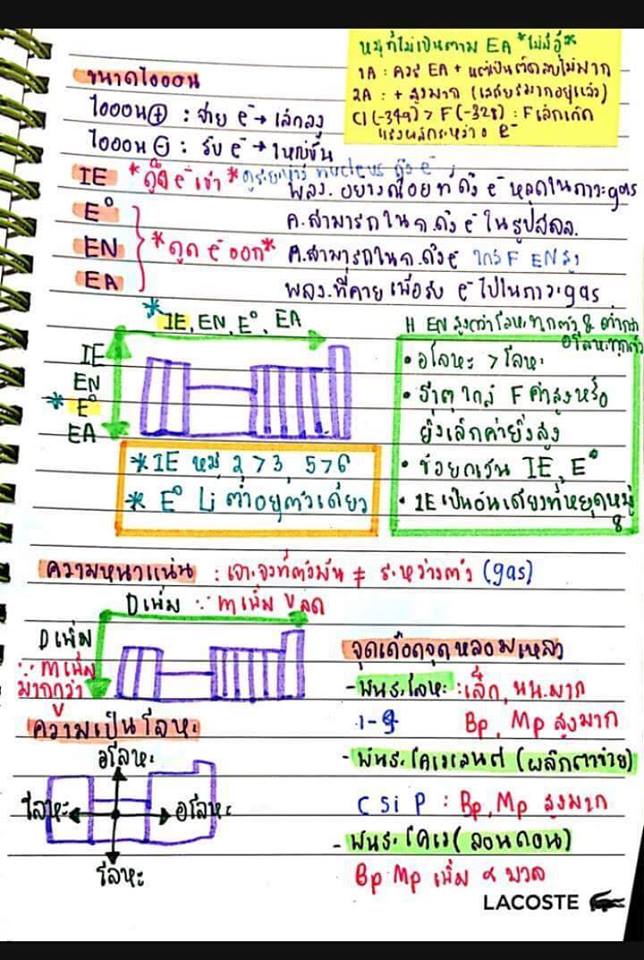 หมู่ที่ไม่เป็นตาม EA *ไม่มีอู๋*
1A : ควร EA + แต่เป็นติดลบไม่มาก
2A : + สูงมาก (เสถียรมากอยู่แล้ว)
Cl (-349) > F (-328) : F เล็กเกิด
แรงผลักระหว่าง e⁻
ขนาดไอออน
ไอออน⊕ : จ่าย e⁻ → เล็กลง
ไอออน⊖ : รับ e⁻ → ใหญ่ขึ้น
IE *ดึงe⁻เข้า* nucleus ดึง e⁻
พลง. อย่างน้อยที่ดึง e⁻ หลุดในภาวะgas
E° ค.สามารถใน ก.ดึง e⁻ ในรูปสลล.
EN *ดูด e⁻ ออก* ค.สามารถใน ก.ดึงe⁻ ใกล้ F EN สูง
EA พลง.ที่คายเพื่อรับ e⁻ ไปในภาวะgas
*IE, EN, E°, EA
H EN สูงกว่าโลหะทุกตัว & ต่ำกว่า
อโลหะทุกตัว
IE
EN
* E°
EA
• อโลหะ > โลหะ
• ธาตุใกล้ F ค่าสูงหรือ
ยิ่งเล็กค่ายิ่งสูง
• ข้อยกเว้น IE, E°
• IE เป็นอันเดียวที่หยุดหมู่
8
* IE หมู่ 2 > 3, 5 > 6
* E° Li ต่ำอยู่ตัวเดียว
ความหนาแน่น : เจาะจงที่ตัวมัน ≠ ระหว่างตัว (gas)
Dเพิ่ม ∵ mเพิ่ม vลด
Dเพิ่ม
∵ mเพิ่ม
มากกว่า
จุดเดือดจุดหลอมเหลว
- พันธะโลหะ : เล็ก, นน.มาก
Bp, Mp สูงมาก
ความเป็นโลหะ
อโลหะ
- พันธะโคเวเลนต์ (ผลึกตาข่าย)
โลหะ
อโลหะ
C Si P : Bp, Mp สูงมาก
- พันธะโคเว(ลอนดอน)
โลหะ
Bp Mp เพิ่ม ∝ มวล
LACOSTE